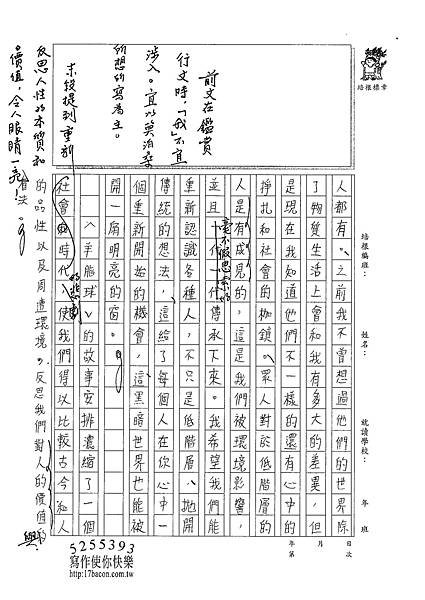 培根標章
培根編班：
姓名：
就讀學校：
年 班
年 月 日
第 次
前文在鑑賞
行文時，「我」不宜
涉入。宜以莫泊桑
所想的寫為主。
末段提到重新
反思人性的本質和
價值，令人眼睛一亮！
人都有。之前我不曾想過他們的世界除
了物質生活上會和我有多大的差異，但
是現在我知道他們不一樣的還有心中的
掙扎和社會的枷鎖。眾人對於低階層的
人是有成見的，這是我們被環境影響，
並且毫不假思索的一代一代傳承下來。我希望我們能
重新認識各種人，不只是低階層，拋開
傳統的想法，這給了每個人在你心中一
個重新開始的機會，這黑暗世界也能被
開一扇明亮的窗。
〈羊脂球〉的故事安排濃縮了一個
社會時代的悲，使我們得以比較古今私人
的品性以及周遭環境，反思我們對人的價值與
看法。
5255393
寫作使你快樂
http://17bacon.com.tw